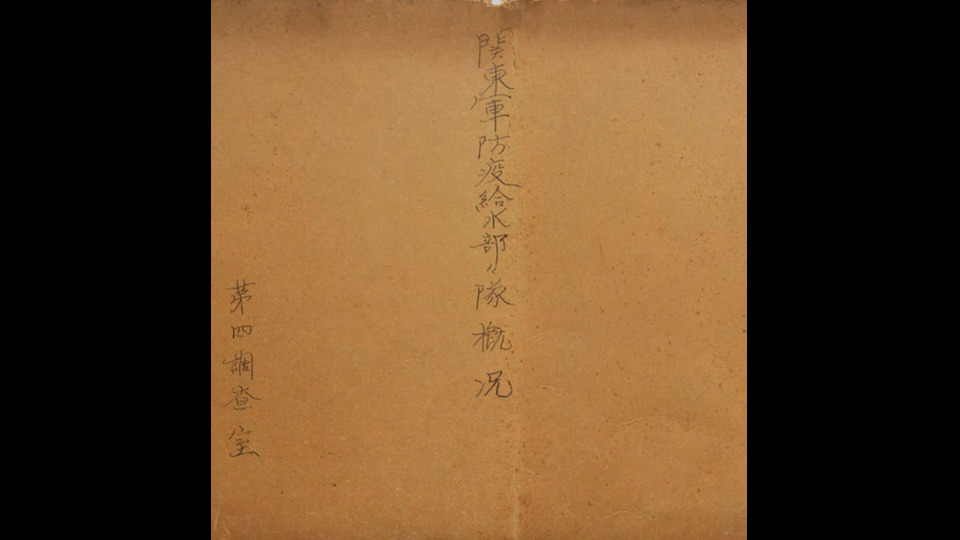 関東軍防疫給水部々隊概況
第四調査室